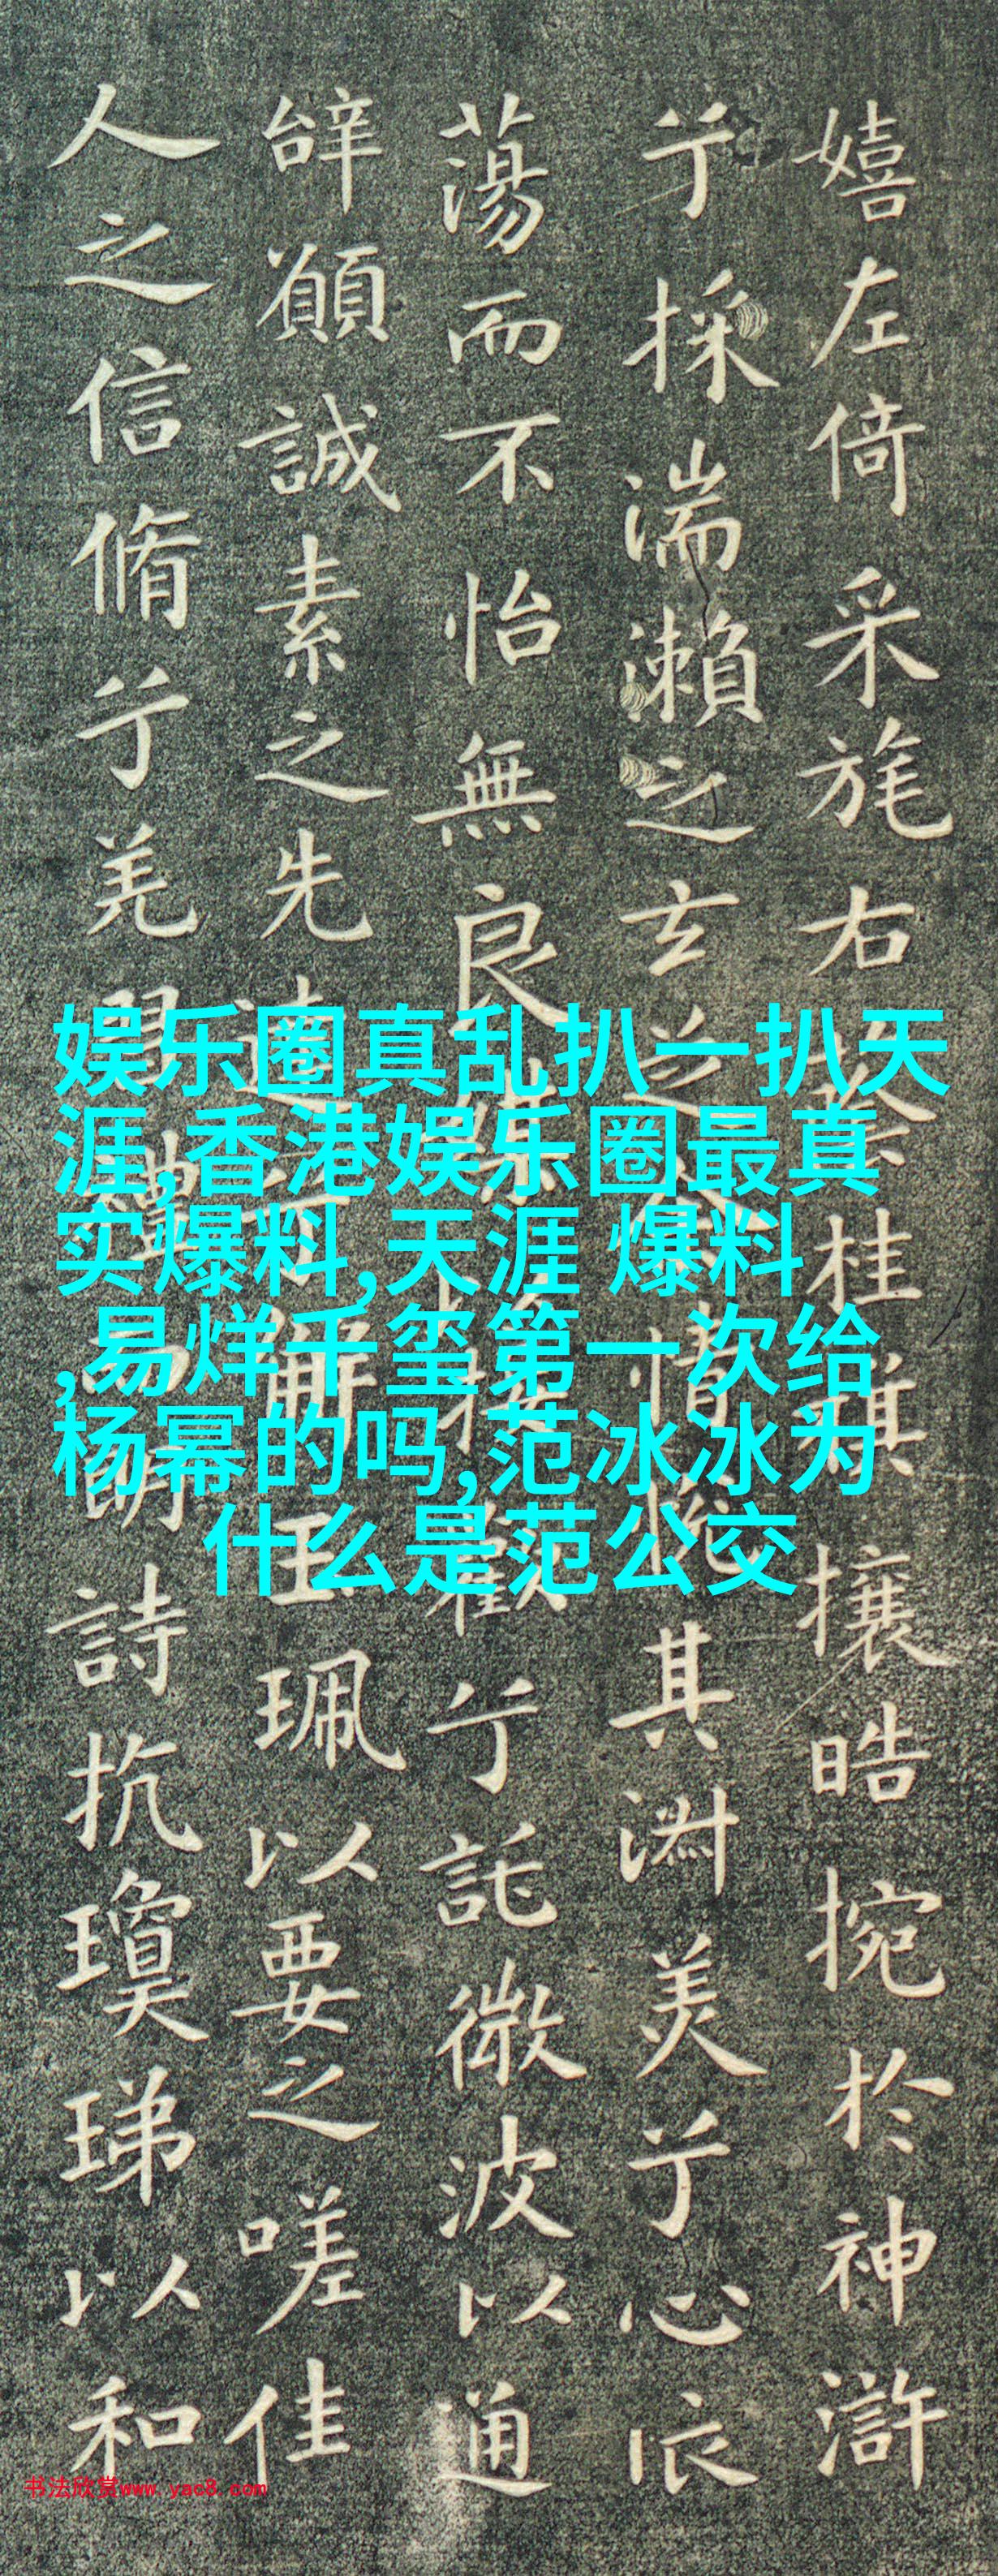 嬉左倚采旄右蔭桂旗攘皓捥於神滸
兮採湍瀨之玄芝余情悅其淑美兮心振
蕩而不怡無良媒以接懽兮託微波以通
辭願誠素之先達兮解玉珮以要之嗟佳
人之信脩兮羌習禮而明詩抗瓊珶以和
娱乐圈真乱扒一扒天
涯,香港娱乐圈最真
实爆料,天涯 爆料
,易烊千玺第一次给
杨幂的吗,范冰冰为
什么是范公交
书法欣赏www.yac8.com